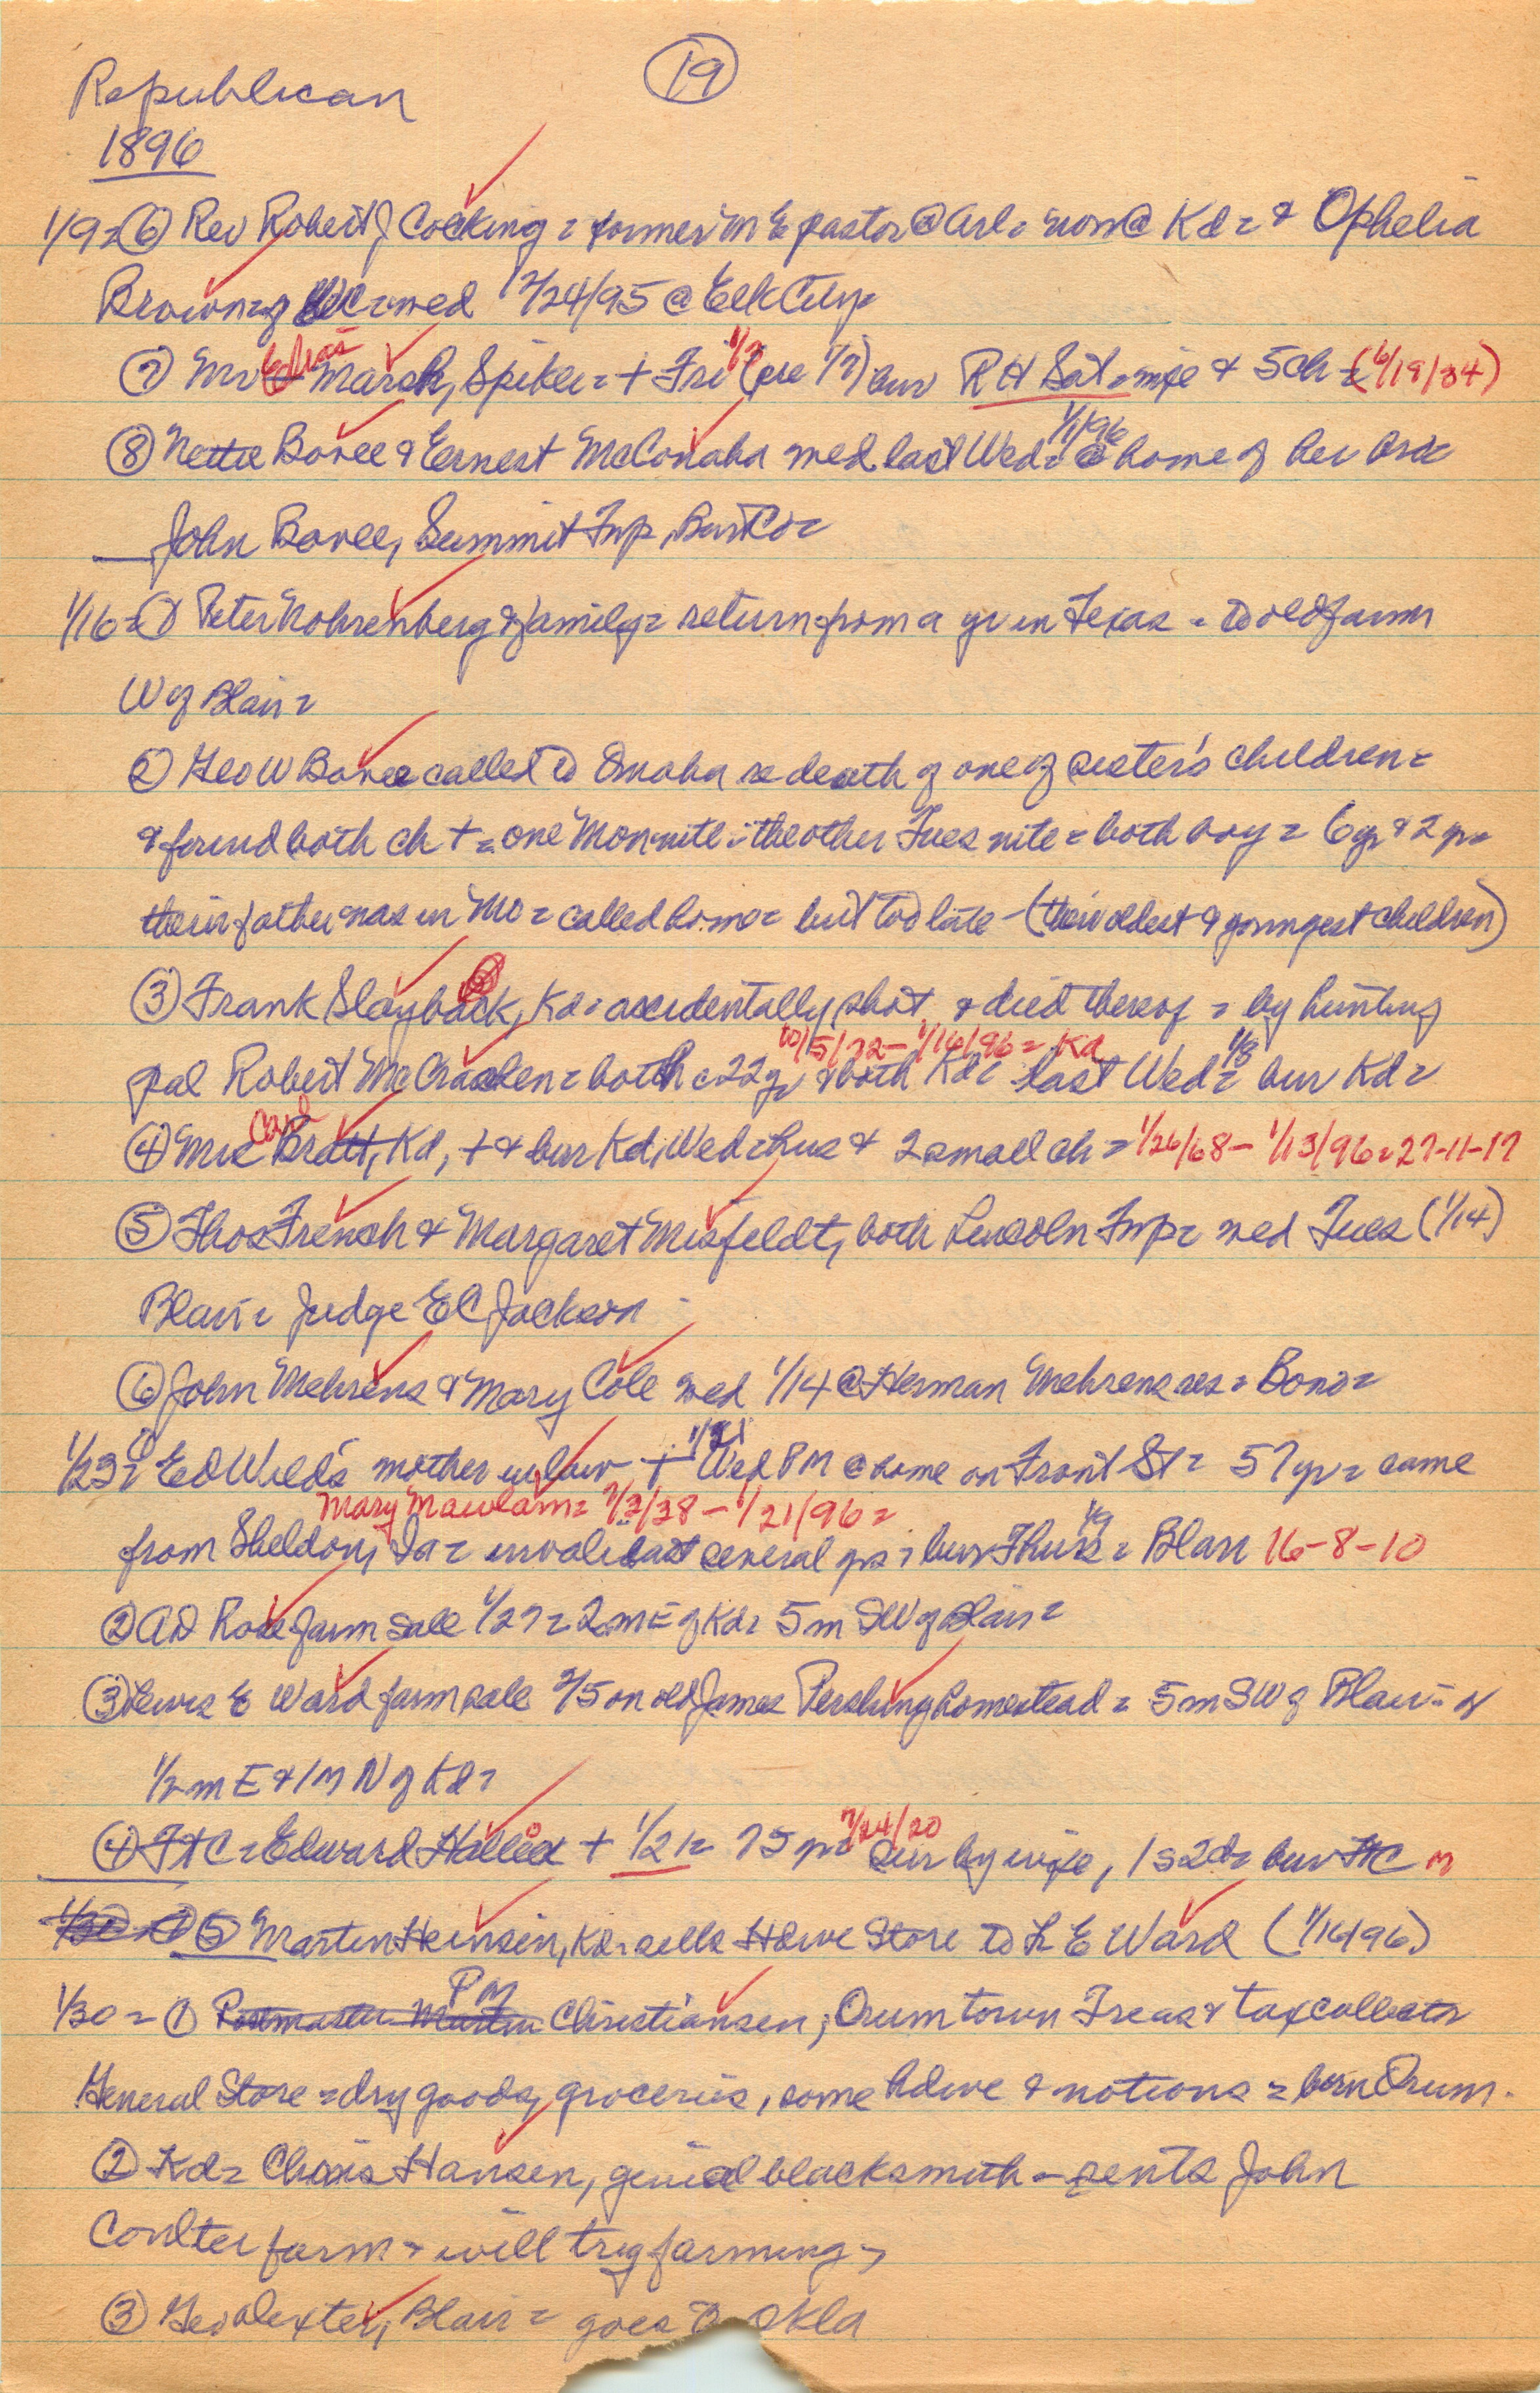 Republican
19
1896
1/9 = ⑥ Rev Robert J Cocking = former M E pastor @ Arl = now @ Kd = & Ophelia
Brown of = wed 12/24/95 @ Elk City =
⑦ Mr Ed Marsh, Spiker = + Fri 1/3 (pre 1/7) bur R H Sat = wife & 5 ch = (6/19/34)
⑧ Nettie Bovee & Earnest McConaha wed last Wed = 1/1/96 @ home of her bro =
John Bovee, Summit Twp, Burt Co =
1/16 = ① Peter Rohrenberg & family = return from a yr in Texas = to old farm
W of Blair =
② Geo W Bovee called to Omaha re death of one of sister's children =
& found both ch + = one Mon nite = the other Tues nite = both boy = 6 yr & 2 yr =
their father was in Mo = called home = but too late - (their oldest & youngest children)
③ Frank Slayback, Kd = accidentally shot & died thereof = by hunting
pal Robert McCracken = both c 22 yr & both Kd = last Wed = 1/8 bur Kd =
10/5/72 - 1/16/96 = Kd
④ Mrs Carl Bratt, Kd, + & bur Kd, Wed = hus & 2 small ch = 1/26/68 - 1/13/96 = 27-11-17
⑤ Thos French & Margaret Misfeldt, both Lincoln Twp = wed Tues (1/14)
Blair = Judge E C Jackson
⑥ John Mehrens & Mary Cole wed 1/14 @ Herman Mehrens res = Bono =
1/23 = ① Ed Wild's mother in law + 1/21 Wed PM @ home on Front St = 57 yr = came
Mary Mawlam = 7/3/38 - 1/21/96 =
from Sheldon, Ia = invalid last several yrs = bur Thurs = Blair 16-8-10
② A D Rose farm sale 1/27 = 2 m E of Kd = 5 m SW of Blair =
③ Lewis E Ward farm sale 2/5 on old James Pershing homestead = 5 m SW of Blair = or
1/2 m E & 1 m N of Kd =
④ Ft C = Edward + 1/21 = 75 yr = 7/24/20 sur by wife, 1 s 2 d = bur Ft C
⑤ Martin Heinsen, Kd = sells Hdwe Store to L E Ward (1/16/96)
1/30 = ① Postmaster Martin PM Christiansen, Orum town Treas & tax collector
General Store = dry goods, groceries, some hdwe & notions = born Orum.
② Kd = Chris Hansen, genial blacksmith = rents John
Coulter farm = will try farming =
③ Geo Dexter, Blair = goes to Okla